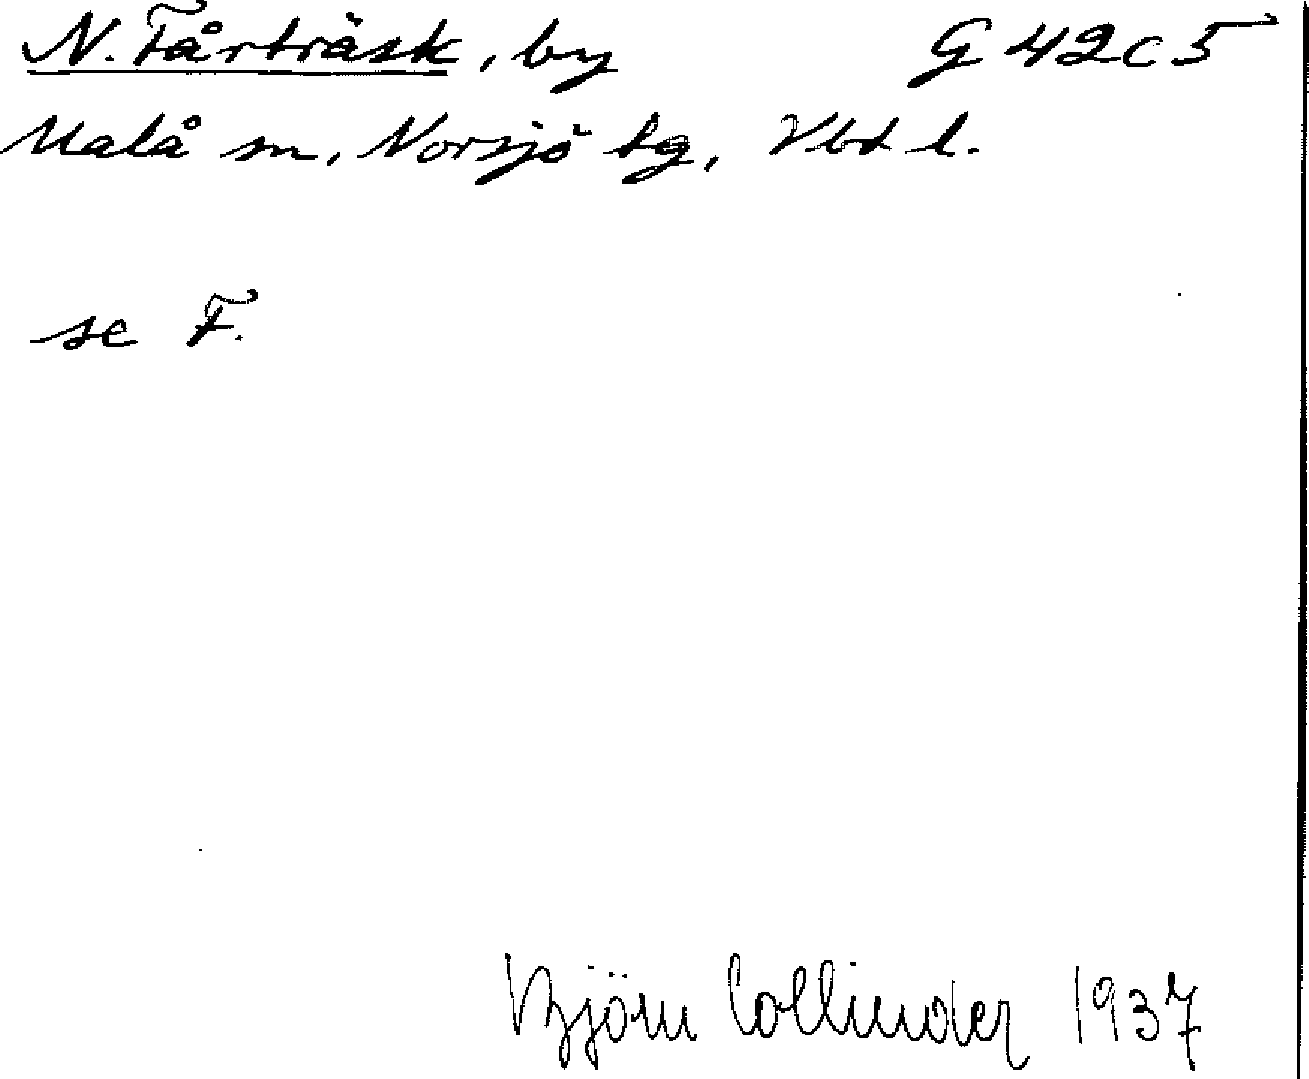 N. Fårträsk, by G 42c5
Malå sn, Norsjö tg, Vbt l.
se F.
Björn Collinder 1937